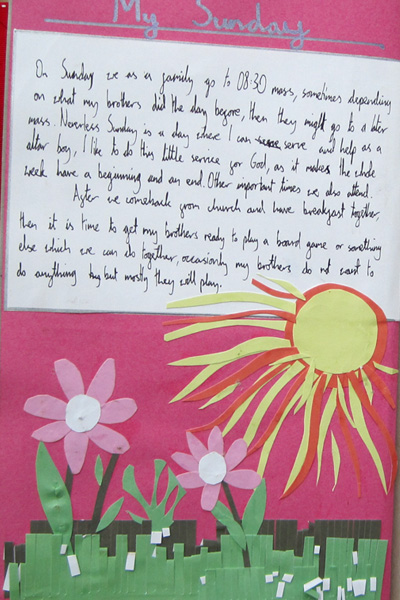 My Sunday
On Sunday we as a family go to 08:30 mass, sometimes depending
on what my brothers did the day before, then they might go to a later
mass. Noneless Sunday is a day where I can serve and help as a
altar boy, I like to do this little service for God, as it makes the whole
week have a beginning and an end. Other important times we also attend.
After we comeback from church and have breakfast together,
then it is time to get my brothers ready to play a board game or something
else which we can do together, occasionly my brothers do not want to
do anything but mostly they will play.